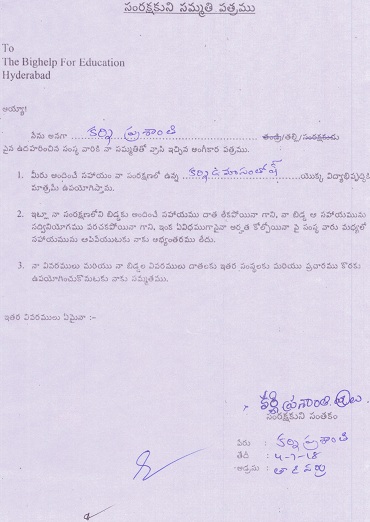 సంరక్షకుని సమ్మతి పత్రము
To
The Bighelp For Education
Hyderabad
అయ్యా!
నేను అనగా కర్ని ప్రశాంతి తండ్రి/తల్లి/సంరక్షకుడు
పైన ఉదహరించిన సంస్థ వారికి నా సమ్మతితో వ్రాసి ఇచ్చిన అంగీకార పత్రము.
1. మీరు అందించే సహాయం నా సంరక్షణలో ఉన్న యొక్క విద్యాభివృద్ధికి
మాత్రమే ఉపయోగిస్తాము.
2. ఇట్లా నా సంరక్షణలోని బిడ్డకు అందించే సహాయము దాత లేకపోయినా గాని, నా బిడ్డ ఆ సహాయమును
సద్వినియోగము పరచకపోయినా గాని, ఇంక ఏవిధముగానైనా అర్హత కోల్పోయినా పై సంస్థ వారు మధ్యలో
సహాయమును ఆపివేయుటకు నాకు అభ్యంతరము లేదు.
3. నా వివరములు మరియు నా బిడ్డల వివరములు దాతలకు ఇతర సంస్థలకు మరియు ప్రచారము కొరకు
ఉపయోగించుకొనుటకు నాకు సమ్మతము.
ఇతర వివరములు ఏమైనా :-
సంరక్షకుని సంతకం
పేరు : కర్ని ప్రశాంతి
తేదీ : 4-7-18